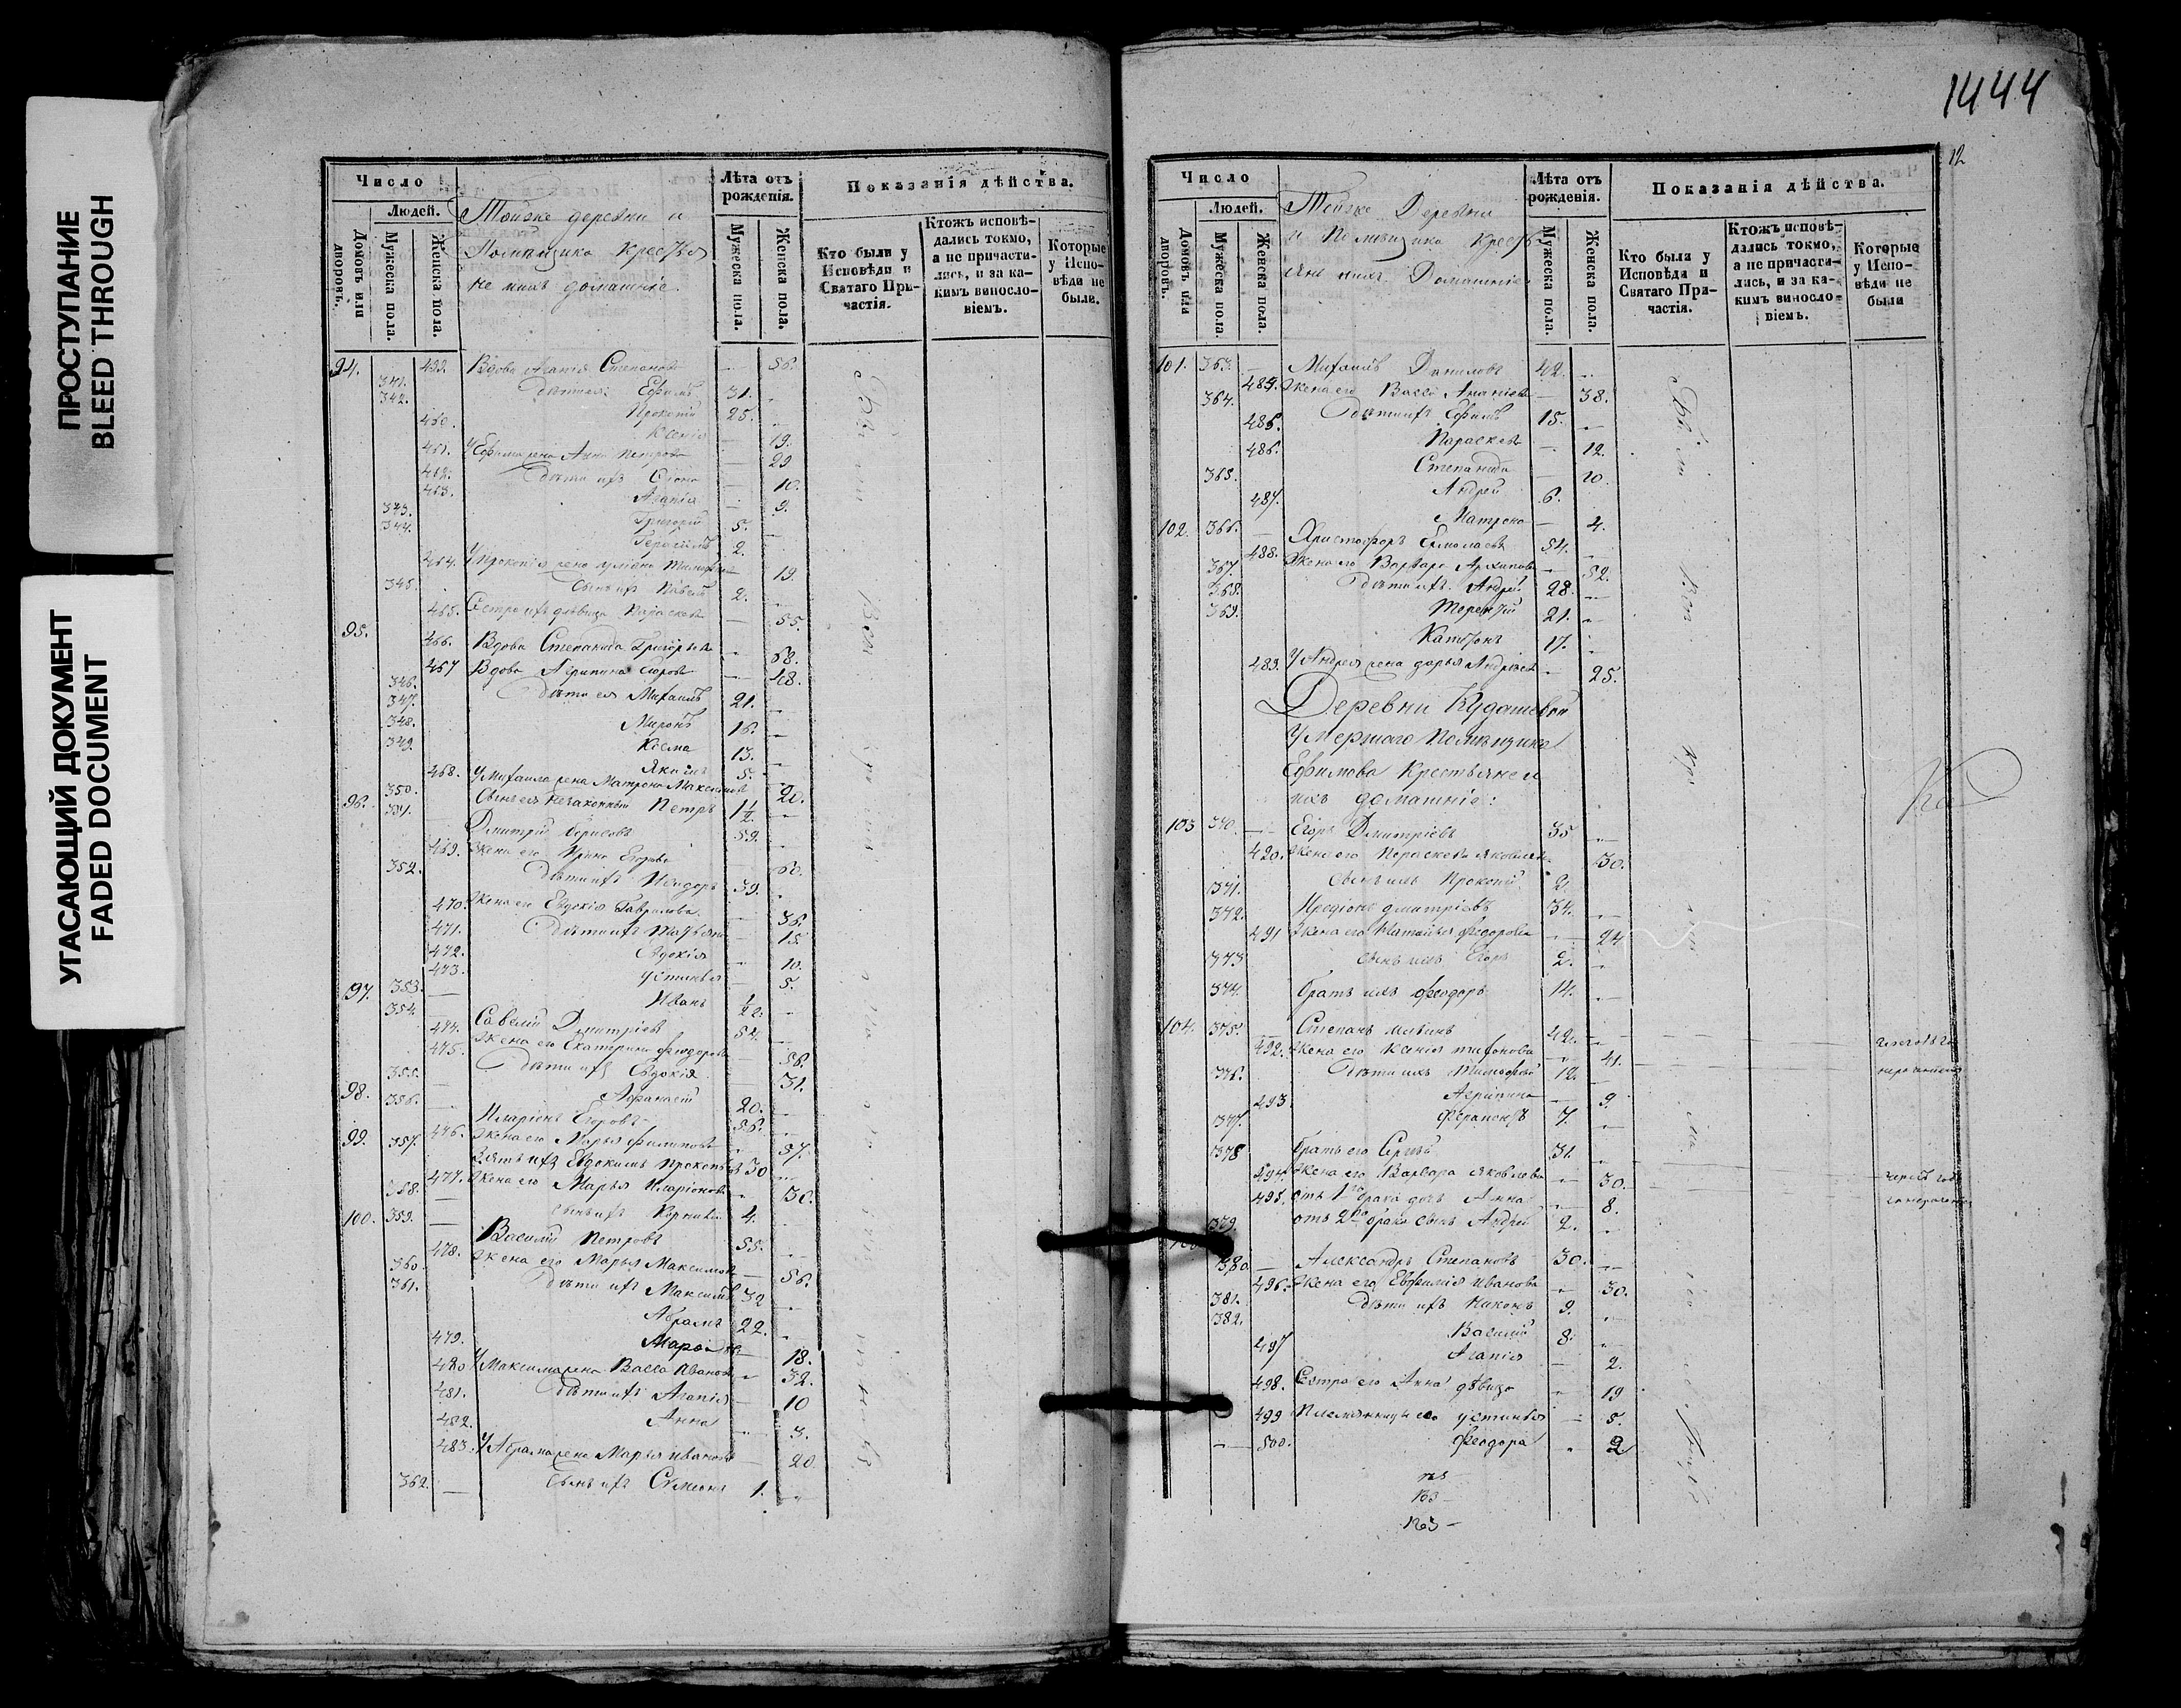 ПРОСТУПАНИЕ
BLEED THROUGH
УГАСАЮЩИЙ ДОКУМЕНТ
FADED DOCUMENT
Число
Людей.
Домовъ или дворовъ.
Мужеска пола.
Женска пола.
Тойже деревни и
Помѣщика Крестья
не ихъ домашніе.
Лѣта отъ рожденія.
Мужеска пола.
Женска пола.
Показанія дѣйства.
Кто были у Исповѣди и Святаго Причастія.
Ктожъ исповѣдались токмо, а не причастились, и за какимъ винословіемъ.
Которые у Исповѣди не были.
94. Вдова Агапія Степанова 56.
341. Дѣти ея: Ефимъ 31.
342. Прокопій 25.
460. Ксенія 19.
461. У Ефима жена Анна Петрова 29
462. Дѣти ихъ 10.
463. Агапія 9.
343. Григорій 5.
344. Герасимъ 2.
464. У Прокопія жена 19.
345. Сынъ ихъ Павелъ 2.
465. Сестра ихъ дѣвица Параскева 55.
95. 466. Вдова Степанида Григорьева 68.
467 Вдова Агрипина 48.
346. Дѣти ея Михаилъ 21.
347. Миронъ 16.
348. Косма 13.
349. Якимъ 5.
468. У Михаила жена Матрона Максимова 20.
350. Сынъ ея незаконный Петръ 1½
96. 351. Дмитрій Борисовъ 59.
469. Жена его Ирина Егорова 60.
352. Дѣти ихъ Исидоръ 39.
470. Жена его Евдокія Гаврилова 36.
471. Дѣти ихъ Татьяна 15.
472. Евдокія 10.
473. Устинья 5.
353. Иванъ ½
97. 354. Савелій Дмитріевъ 54.
474. Жена его Екатерина Феодорова 56.
475. Дѣти ихъ Евдокія 31.
355. Афанасій 20.
98. 356. Иларіонъ Егоровъ 56.
476. Жена его Марья Филипова 57.
99. 357. Зять ихъ Евдокимъ Прокопьевъ 30
477. Жена его Марья Иларіонова 30.
358. Сынъ ихъ Корнилій 4.
100. 359. Василій Петровъ 55.
478. Жена его Марья Максимова 56.
360. Дѣти ихъ Максимъ 32
361. Абрамъ 22.
479. Марія 18.
480 У Максима жена Васса Иванова 32.
481. Дѣти ихъ Агапія 10
482. Анна 3.
483. У Абрама жена Марья Иванова 20.
362. Сынъ ихъ Симеонъ 1.
1444
12
Число
Людей.
Домовъ или дворовъ.
Мужеска пола.
Женска пола.
Тойже Деревни
и Помѣщика Кресть
яне ихъ Домашніе
Лѣта отъ рожденія.
Мужеска пола.
Женска пола.
Показанія дѣйства.
Кто были у Исповѣди и Святаго Причастія.
Ктожъ исповѣдались токмо, а не причастились, и за какимъ винословіемъ.
Которые у Исповѣди не были
101. 363. Михаилъ Даниловъ 42.
484. Жена его Васса Ананіева 38.
364. Дѣти ихъ Ефимъ 15.
485. Параскева 12.
486. Степанида 10.
365. Андрей 6.
487. Матрона 4.
102. 366. Христофоръ Ермолаевъ 54.
488. Жена его Варвара Архипова 52.
367. Дѣти ихъ Андрей 28.
368. Терентій 21.
369. Капитонъ 17.
489. У Андрея жена Дарья Андреева 25.
Деревни Кудашевой
Умершаго Помѣщика
Ефимова Крестьяне и
ихъ домашніе:
103 370. Егоръ Дмитріевъ 35
420. Жена его Параскева Яковлева 30.
371. Сынъ ихъ Прокопій 2.
372. Иродіонъ Дмитріевъ 34.
491 Жена его Наталья Федорова 24
373 Сынъ ихъ Егоръ 2.
374. Братъ ихъ Феодоръ 14.
104. 375. Степанъ 42.
492. Жена его Ксенія Тифонова 41.
376. Дѣти ихъ Тимофей 12.
493. Агрипина 9.
377. Ферапонтъ 7.
378 Братъ его Сергѣй 31.
494. Жена его Варвара Яковлева 30.
495. отъ 1го брака дочь Анна 8.
379. отъ 2го брака сынъ Андрей 2.
380 Александръ Степановъ 30.
496. Жена его Евфимія Иванова 30.
381. Дѣти ихъ Никонъ 9.
382. Василій 8.
497 Агапія 2.
498. Сестра его Анна дѣвица 19
499 Племянницы его Устинья 5.
500. Феодора 2